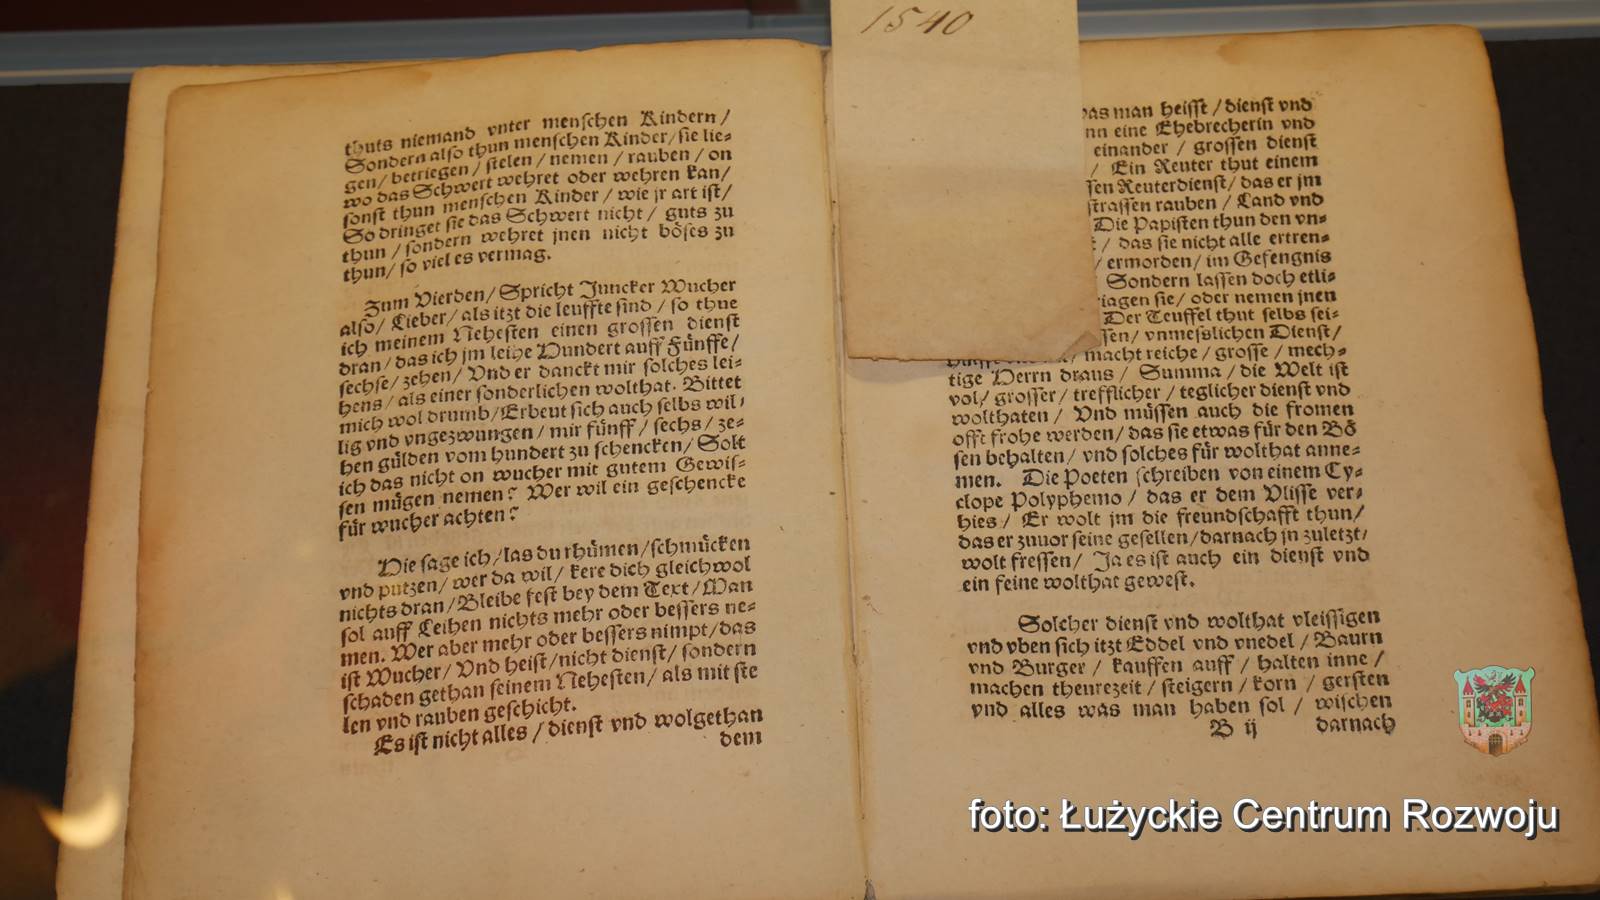 1540
thuts niemand vnter menschen Kindern /
Sondern also thun menschen Kinder / sie lie=
gen / betriegen / stelen / nemen / rauben / on
wo das Schwert wehret oder wehren kan /
sonst thun menschen Kinder / wie jr art ist /
So dringet sie das Schwert nicht / guts zu
thun / sondern wehret jnen nicht böses zu
thun / so viel es vermag.
Zum Vierden / Spricht Juncker Wucher
also / Lieber / als itzt die leuffte sind / so thue
ich meinem Nehesten einen grossen dienst
dran / das ich jm leihe Hundert auff Fünffe /
sechse / zehen / Vnd er danckt mir solches lei=
hens / als einer sonderlichen wolthat. Bittet
mich wol drumb / Erbeut sich auch selbs wil=
lig vnd vngezwungen / mir fünff / sechs / ze=
hen gülden vom hundert zu schencken / Solt
ich das nicht on wucher mit gutem Gewis=
sen mügen nemen? Wer wil ein geschencke
für wucher achten?
Hie sage ich / las du rhümen / schmücken
vnd putzen / wer da wil / kere dich gleichwol
nichts dran / Bleibe fest bey dem Text / Man
sol auff Leihen nichts mehr oder bessers ne=
men. Wer aber mehr oder bessers nimpt / das
ist Wucher / Vnd heist / nicht dienst / sondern
schaden gethan seinem Nehesten / als mit ste
len vnd rauben geschicht.
Es ist nicht alles / dienst vnd wolgethan
dem
was man heisst / dienst vnd
eine Ehebrecherin vnd
einander / grossen dienst
/ Ein Reuter thut einem
Reuterdienst / das er jm
strassen rauben / Land vnd
Die Papisten thun den vn=
/ das sie nicht alle ertren=
/ ermorden / im Gefengnis
Sondern lassen doch etli=
sie / oder nemen jnen
Der Teuffel thut selbs sei=
/ vnmeslichen Dienst /
/ macht reiche / grosse / mech=
tige Herrn draus / Summa / die Welt ist
vol / grosser / trefflicher / teglicher dienst vnd
wolthaten / Vnd müssen auch die fromen
offt frohe werden / das sie etwas für den Bö
sen behalten / vnd solches für wolthat anne=
men. Die Poeten schreiben von einem Cy=
clope Polyphemo / das er dem Vlisse ver=
hies / Er wolt jm die freundschafft thun /
das er zuuor seine gesellen / darnach jn zuletzt /
wolt fressen / Ja es ist auch ein dienst vnd
ein feine wolthat gewest.
Solcher dienst vnd wolthat vleissigen
vnd vben sich itzt Eddel vnd vnedel / Baurn
vnd Burger / kauffen auff / halten inne /
machen theurezeit / steigern / korn / gersten
vnd alles was man haben sol / wisschen
B ij darnach
foto: Łużyckie Centrum Rozwoju